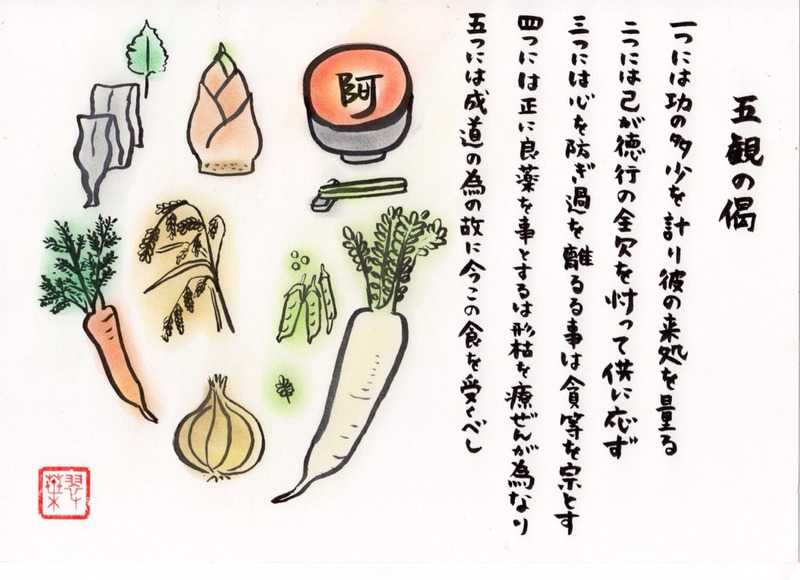 五観の偈
一つには功の多少を計り彼の来処を量る
二つには己が徳行の全欠を忖って供に応ず
三つには心を防ぎ過を離るる事は貪等を宗とす
四つには正に良薬を事とするは形枯を療ぜんが為なり
五つには成道の為の故に今この食を受くべし
阿